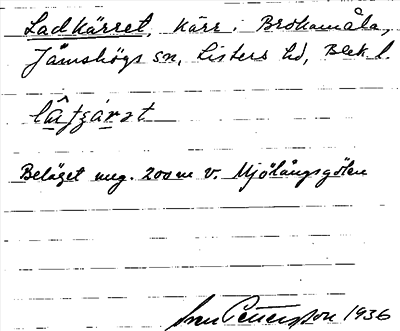 Ladkärret, kärr i Brokamåla,
Jämshögs sn, Listers hd, Blek l.
Beläget ung. 200 m v. Mjölångsgölen
Sven Pettersson 1936